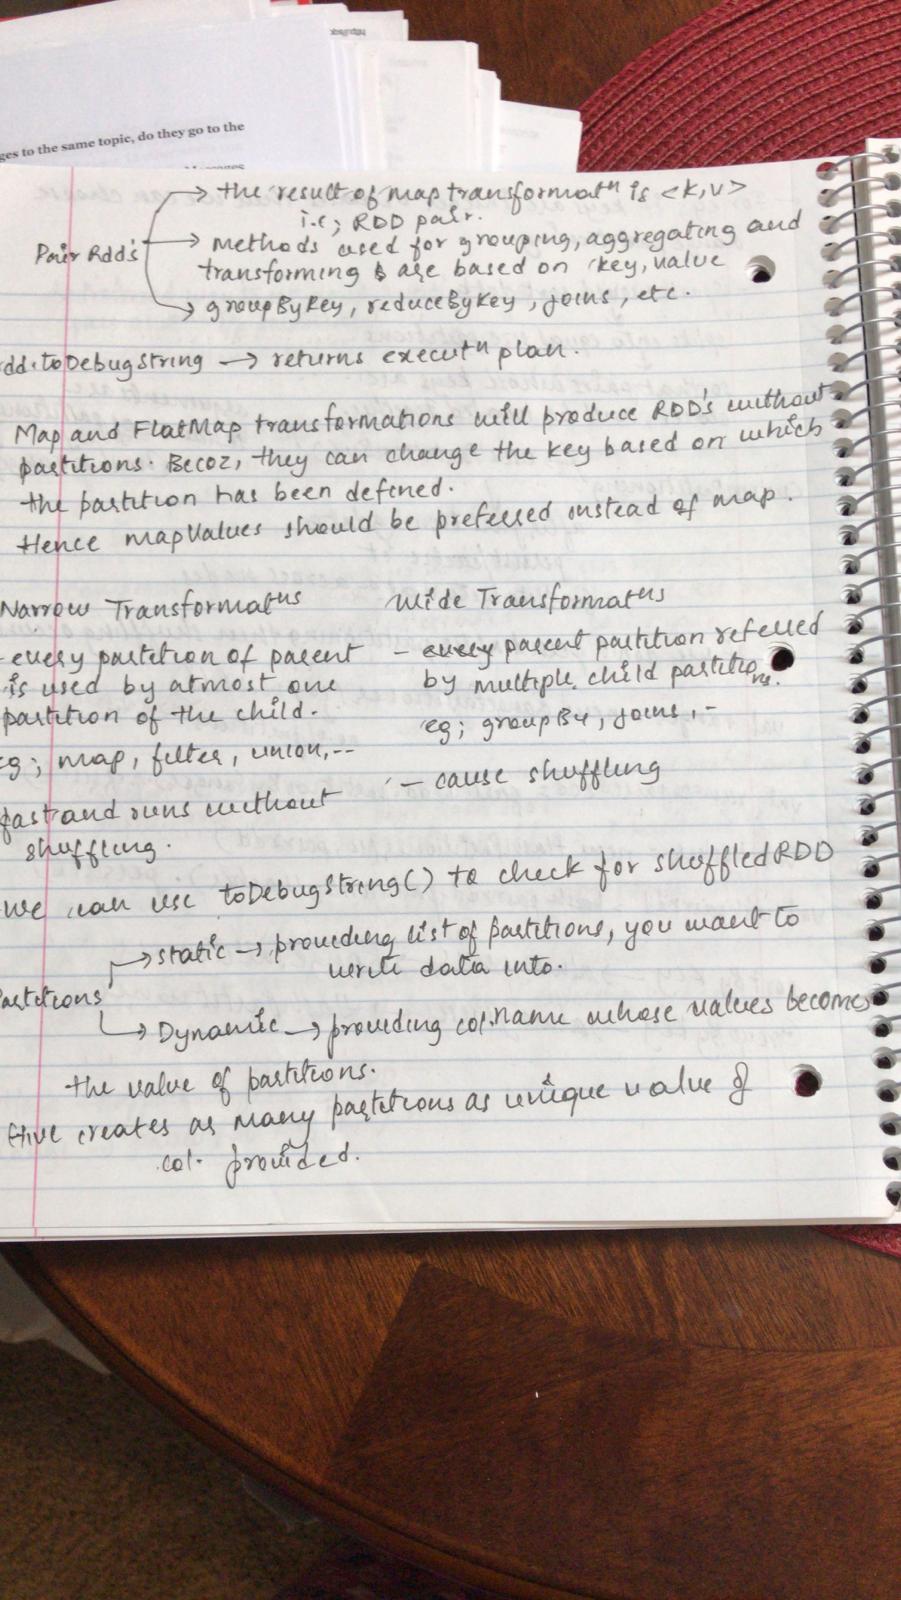 ges to the same topic, do they go to the
→ the result of map transformatⁿ is <K,V>
i.e; RDD pair.
Pair Rdd's → methods used for grouping, aggregating and
transforming are based on key, value
→ groupByKey, reduceByKey, joins, etc.
rdd.toDebugString → returns executⁿ plan.
Map and FlatMap transformations will produce RDD's without
partitions. Becoz, they can change the key based on which
the partition has been defined.
Hence mapValues should be preferred instead of map.
Narrow Transformatⁿs
- every partition of parent
is used by atmost one
partition of the child.
eg; map, filter, union,--
fast and runs without
shuffling.
Wide Transformatⁿs
- every parent partition referred
by multiple child partitions.
eg; groupBy, joins,-
- cause shuffling
we can use toDebugString() to check for shuffledRDD
→ static → providing list of partitions, you want to
write data into.
Partitions
→ Dynamic → providing col.name whose values becomes
the value of partitions.
Hive creates as many partitions as unique value of
col. provided.